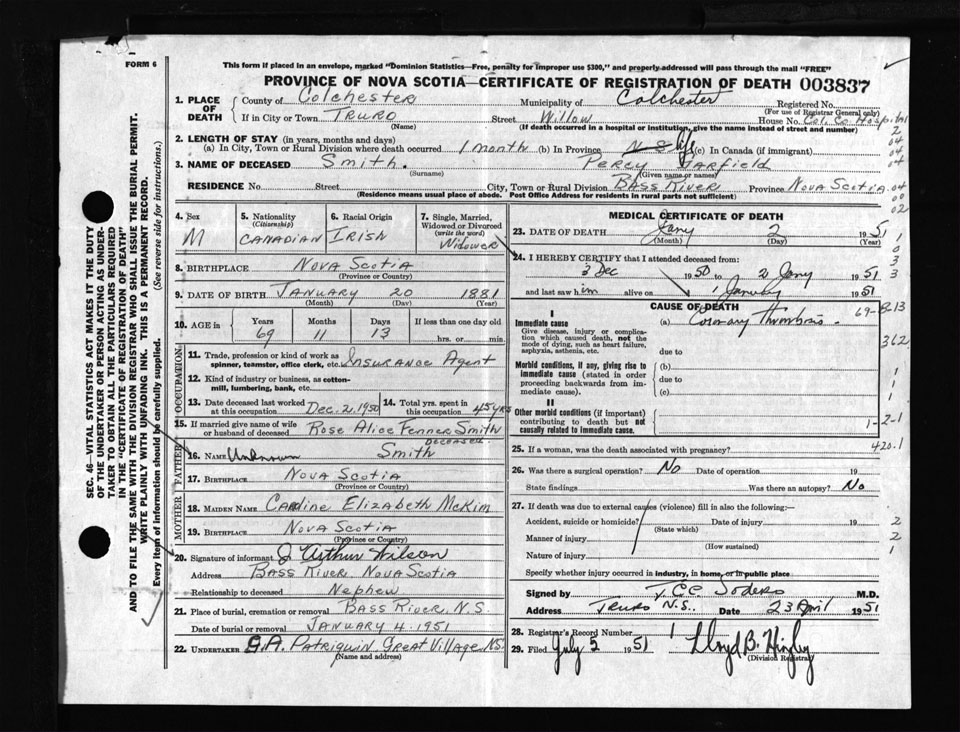 FORM 6
This form if placed in an envelope, marked "Dominion Statistics—Free, penalty for improper use $300," and properly addressed will pass through the mail "FREE"
PROVINCE OF NOVA SCOTIA—CERTIFICATE OF REGISTRATION OF DEATH 003837
1. PLACE OF DEATH
County of Colchester Municipality of Colchester Registered No.
(For use of Registrar General only)
If in City or Town TRURO Street Willow House No. Col. Co. Hospital
(Name) (If death occurred in a hospital or institution, give the name instead of street and number)
2. LENGTH OF STAY (in years, months and days)
(a) In City, Town or Rural Division where death occurred 1 month (b) In Province life (c) In Canada (if immigrant)
3. NAME OF DECEASED Smith. Percy Garfield
(Surname) (Given name or names)
RESIDENCE No. Street City, Town or Rural Division BASS RIVER Province NOVA SCOTIA
(Residence means usual place of abode. Post Office Address for residents in rural parts not sufficient)
2
04
04
04
04
00
02
SEC. 46—VITAL STATISTICS ACT MAKES IT THE DUTY
OF THE UNDERTAKER OR PERSON ACTING AS UNDER-
TAKER TO OBTAIN ALL THE PARTICULARS REQUIRED
IN THE "CERTIFICATE OF REGISTRATION OF DEATH"
AND TO FILE THE SAME WITH THE DIVISION REGISTRAR WHO SHALL ISSUE THE BURIAL PERMIT.
WRITE PLAINLY WITH UNFADING INK. THIS IS A PERMANENT RECORD.
Every item of information should be carefully supplied. (See reverse side for instructions.)
4. Sex
M
5. Nationality
(Citizenship)
CANADIAN
6. Racial Origin
IRISH
7. Single, Married,
Widowed or Divorced
(write the word)
WIDOWER
8. BIRTHPLACE NOVA SCOTIA
(Province or Country)
9. DATE OF BIRTH JANUARY 20 1881
(Month) (Day) (Year)
10. AGE in Years Months Days If less than one day old
69 11 13 hrs. or min.
OCCUPATION
11. Trade, profession or kind of work as
spinner, teamster, office clerk, etc. INSURANCE AGENT
12. Kind of industry or business, as cotton-
mill, lumbering, bank, etc.
13. Date deceased last worked
at this occupation Dec. 2. 1950
14. Total yrs. spent in
this occupation 45 yrs
15. If married give name of wife
or husband of deceased Rose Alice Fenner Smith
DECEASED.
FATHER
16. NAME Unknown Smith
17. BIRTHPLACE NOVA SCOTIA
(Province or Country)
MOTHER
18. MAIDEN NAME Caroline Elizabeth McKim
19. BIRTHPLACE NOVA SCOTIA
(Province or Country)
20. Signature of informant J Arthur Wilson
Address BASS RIVER NOVA SCOTIA
Relationship to deceased Nephew
21. Place of burial, cremation or removal BASS RIVER, N.S.
Date of burial or removal JANUARY 4. 1951
22. UNDERTAKER G.A. PATRIQUIN GREAT VILLAGE N.S.
(Name and address)
MEDICAL CERTIFICATE OF DEATH
23. DATE OF DEATH Jany 2 1951
(Month) (Day) (Year)
24. I HEREBY CERTIFY that I attended deceased from:
3 Dec 1950 to 2 Jany 1951
and last saw him alive on 1 January 1951
CAUSE OF DEATH
I
Immediate cause
Give disease, injury or complica-
tion which caused death, not the
mode of dying, such as heart failure,
asphyxia, asthenia, etc.
(a) Coronary Thrombosis
due to
Morbid conditions, if any, giving rise to
immediate cause (stated in order
proceeding backwards from im-
mediate cause).
(b)
due to
(c)
II
Other morbid conditions (if important)
contributing to death but not
causally related to immediate cause.
362
1-2-1
420.1
25. If a woman, was the death associated with pregnancy?
26. Was there a surgical operation? No Date of operation 19
State findings Was there an autopsy? No
27. If death was due to external causes (violence) fill in also the following:—
Accident, suicide or homicide? Date of injury 19
(State which)
Manner of injury
(How sustained)
Nature of injury
2
2
1
Specify whether injury occurred in industry, in home, or in public place
Signed by M.D.
Address Truro N.S. Date 23 April 1951
28. Registrar's Record Number 1
29. Filed July 5 1951 Lloyd B.
(Division Registrar)